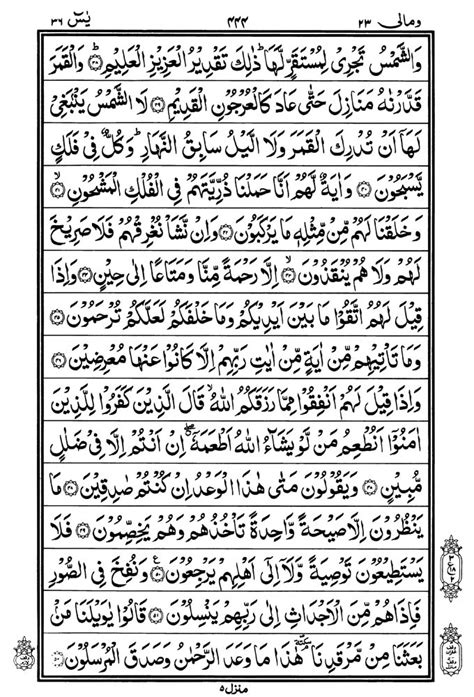 ومالی ٢٣ ٤٤٤ یٰسٓ ٣٦
وَالشَّمْسُ تَجْرِیْ لِمُسْتَقَرٍّ لَّهَا ؕ ذٰلِكَ تَقْدِیْرُ الْعَزِیْزِ الْعَلِیْمِ ؕ وَالْقَمَرَ
قَدَّرْنٰهُ مَنَازِلَ حَتّٰی عَادَ كَالْعُرْجُوْنِ الْقَدِیْمِ لَا الشَّمْسُ یَنْۢبَغِیْ
لَهَاۤ اَنْ تُدْرِكَ الْقَمَرَ وَلَا الَّیْلُ سَابِقُ النَّهَارِ ؕ وَكُلٌّ فِیْ فَلَكٍ
یَّسْبَحُوْنَ وَاٰیَةٌ لَّهُمْ اَنَّا حَمَلْنَا ذُرِّیَّتَهُمْ فِی الْفُلْكِ الْمَشْحُوْنِ
وَخَلَقْنَا لَهُمْ مِّنْ مِّثْلِهٖ مَا یَرْكَبُوْنَ وَاِنْ نَّشَاْ نُغْرِقْهُمْ فَلَا صَرِیْخَ
لَهُمْ وَلَا هُمْ یُنْقَذُوْنَ اِلَّا رَحْمَةً مِّنَّا وَمَتَاعًا اِلٰی حِیْنٍ وَاِذَا
قِیْلَ لَهُمُ اتَّقُوْا مَا بَیْنَ اَیْدِیْكُمْ وَمَا خَلْفَكُمْ لَعَلَّكُمْ تُرْحَمُوْنَ
وَمَا تَاْتِیْهِمْ مِّنْ اٰیَةٍ مِّنْ اٰیٰتِ رَبِّهِمْ اِلَّا كَانُوْا عَنْهَا مُعْرِضِیْنَ
وَاِذَا قِیْلَ لَهُمْ اَنْفِقُوْا مِمَّا رَزَقَكُمُ اللّٰهُ ۙ قَالَ الَّذِیْنَ كَفَرُوْا لِلَّذِیْنَ
اٰمَنُوْۤا اَنُطْعِمُ مَنْ لَّوْ یَشَآءُ اللّٰهُ اَطْعَمَهٗۤ اِنْ اَنْتُمْ اِلَّا فِیْ ضَلٰلٍ
مُّبِیْنٍ وَیَقُوْلُوْنَ مَتٰی هٰذَا الْوَعْدُ اِنْ كُنْتُمْ صٰدِقِیْنَ مَا
یَنْظُرُوْنَ اِلَّا صَیْحَةً وَّاحِدَةً تَاْخُذُهُمْ وَهُمْ یَخِصِّمُوْنَ فَلَا
یَسْتَطِیْعُوْنَ تَوْصِیَةً وَّلَاۤ اِلٰۤی اَهْلِهِمْ یَرْجِعُوْنَ وَنُفِخَ فِی الصُّوْرِ
فَاِذَا هُمْ مِّنَ الْاَجْدَاثِ اِلٰی رَبِّهِمْ یَنْسِلُوْنَ قَالُوْا یٰوَیْلَنَا مَنْۢ
بَعَثَنَا مِنْ مَّرْقَدِنَا هٰذَا مَا وَعَدَ الرَّحْمٰنُ وَصَدَقَ الْمُرْسَلُوْنَ
منزل ٥